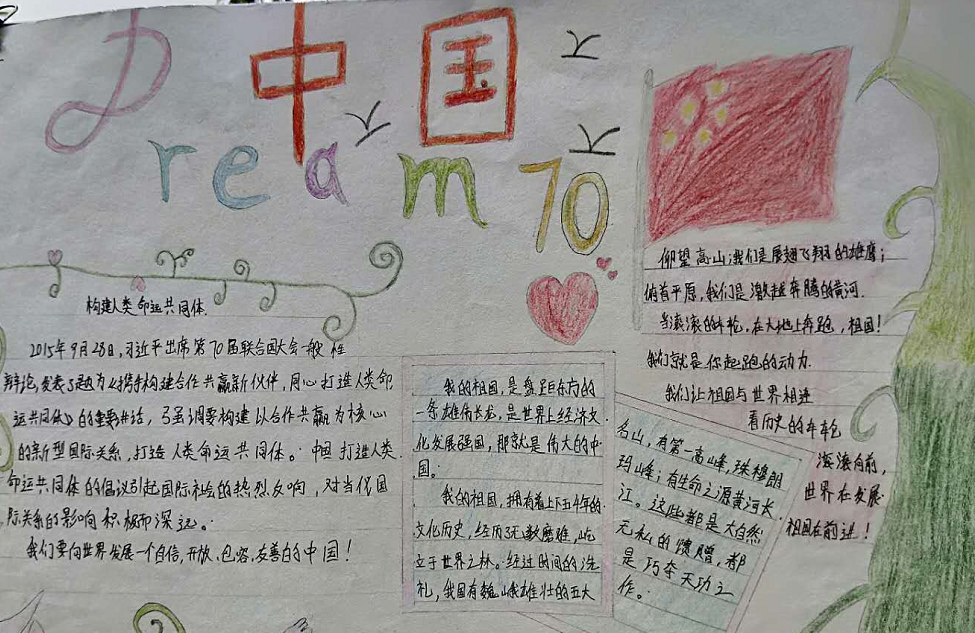 中国
Dream 70
构建人类命运共同体.
2015年9月28日,习近平出席第70届联合国大会一般性
辩论,发表了题为《携手构建合作共赢新伙伴,同心打造人类命
运共同体》的重要讲话,强调要构建以合作共赢为核心
的新型国际关系,打造人类命运共同体。中国打造人类
命运共同体的倡议引起国际社会的热烈反响,对当代国
际关系的影响积极而深远。
我们要向世界发展一个自信,开放,包容,友善的中国!
我的祖国,是盘距东方的
一条雄伟长龙,是世界上经济文
化发展强国,那就是伟大的中
国。
我的祖国,拥有着上下五千年的
文化历史,经历无数磨难,屹
立于世界之林。经过时间的洗
礼,我国有巍峨雄壮的五大
名山,有第一高峰,珠穆朗
玛峰;有生命之源黄河长
江。这些都是大自然
无私的馈赠,都
是巧夺天功之
作。
仰望高山,我们是展翅飞翔的雄鹰;
俯首平原,我们是激越奔腾的黄河.
当滚滚的车轮,在大地上奔跑,祖国!
我们就是你起跑的动力.
我们让祖国与世界相连
看历史的车轮
滚滚向前,
世界在发展
祖国在前进!